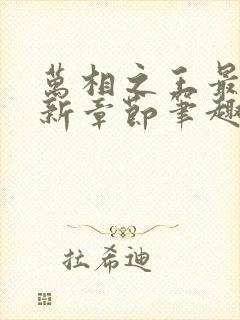 萬相之王最
新章節筆趣
拉希迪